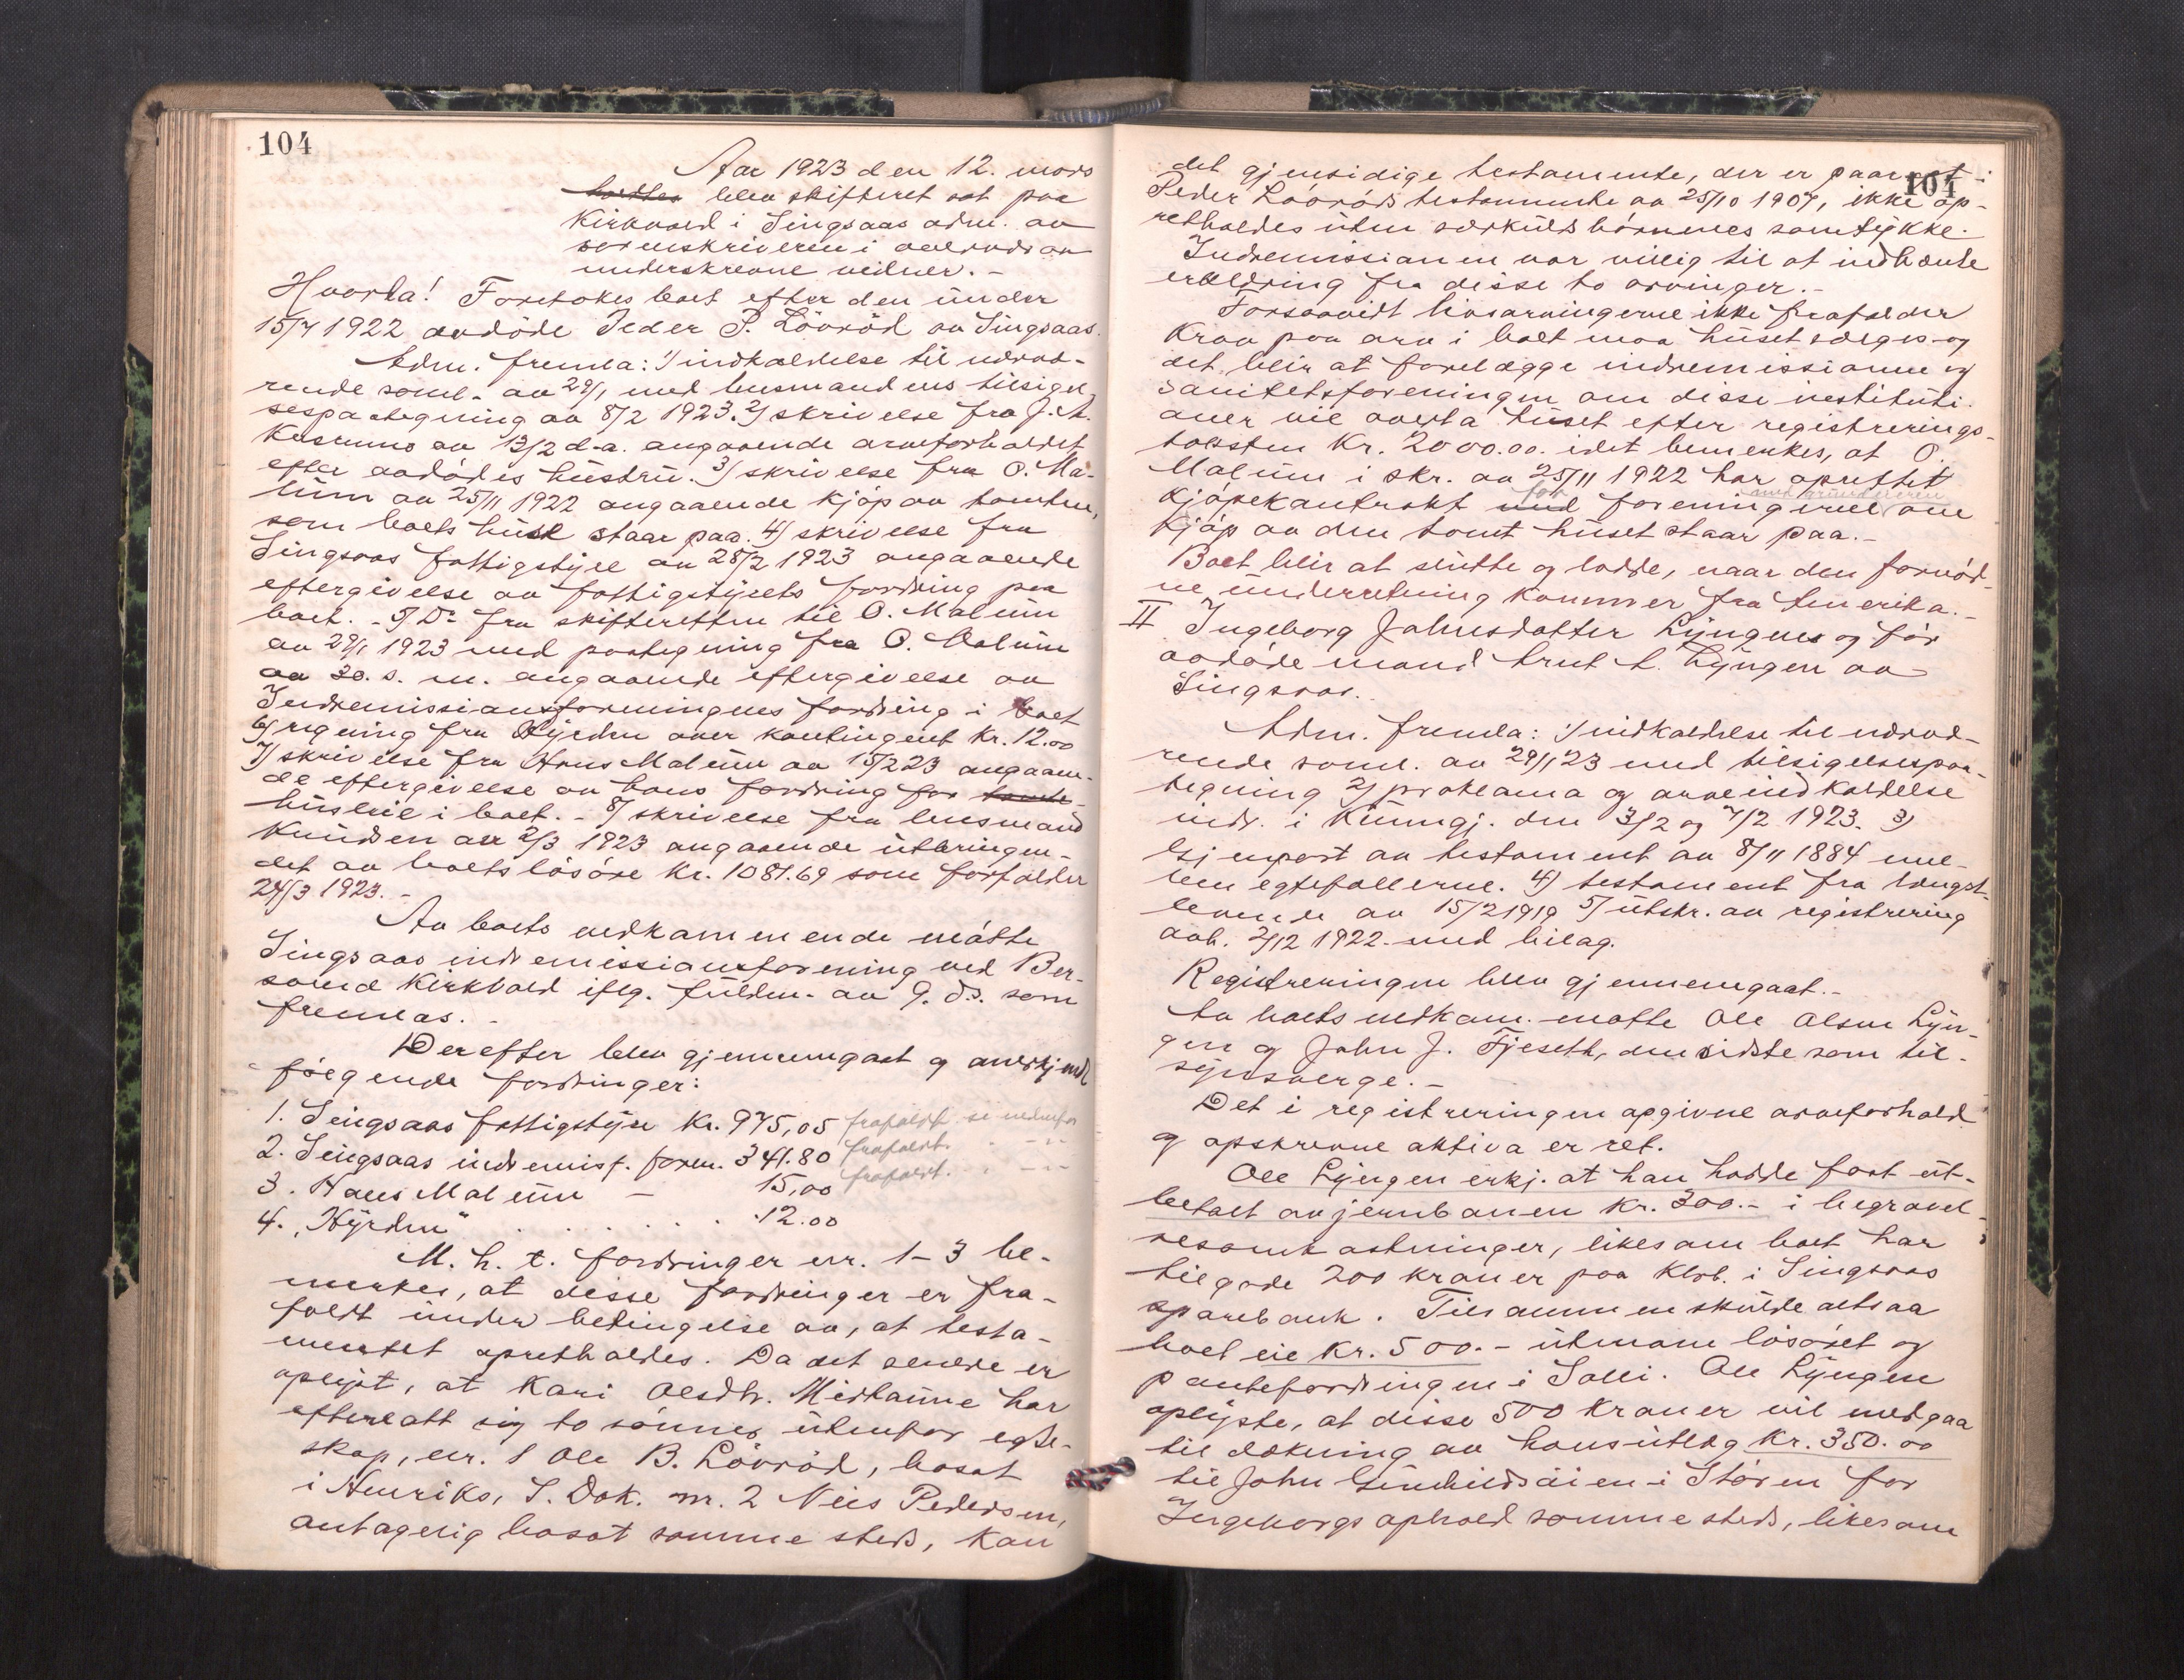 104
Aar 1923 den 12. mars
holdtes blev skifteret sat paa
Kirkvold i Singsaas adm. av
sorenskriveren i overvær av
underskrevne vidner. -
Hvorda! Foretokes boet efter den under
15/7 1922 avdöde Peder P. Lövröd av Singsaas.
Adm. fremla: 1) indkaldelse til nærvæ-
rende saml. av 29/1, med lensmandens tilsigel-
sespaategning av 8/2 1923. 2) skrivelse fra J. A.
av 13/2 d.a. angaaende arveforholdet
efter avdödes hustru. 3) skrivelse fra O. Ma-
lum av 25/11 1922 angaaende kjöp av tomten,
som boets hus staar paa. 4) skrivelse fra
Singsaas fattigstyre av 28/2 1923 angaaende
eftergivelse av fattigstyrets fordring paa
boet. - 5) Do fra skifteretten til O. Malum
av 29/1 1923 med paategning fra O. Malum
av 30. s. m. angaaende eftergivelse av
Indremissionsforeningens fordring i boet
6) regning fra Hyrden over kontingent kr. 12.00
7) skrivelse fra Hans Malum av 15/2 23 angaaen-
de eftergivelse av hans fordring for tomte-
husleie i boet. - 8) skrivelse fra lensmand
Knudsen av 2/3 1923 angaaende utbringen-
det av boets lösöre kr. 1081.69 som forfalder
24/3 1923. -
Av boets vedkommende mötte
Singsaas indremissionsforening ved Ber-
Kirkvold iflg. fuldm. av 9. ds. som
fremlas. -
Derefter blev gjennemgaat og anerkjendt
fölgende fordringer:
1. Singsaas fattigstyre kr. 975,05 frafaldt. se nedenfor
2. Singsaas indremisj. foren. 341.80 frafaldt. - " -
3. Hans Malum - 15,00 frafaldt. - " -
4. "Hyrden" . . . . . . . 12.00
M. h. t. fordringer nr. 1-3 be-
merkes, at disse fordringer er fra-
faldt under betingelse av, at testa-
mentet opretholdes. Da det senere er
oplyst, at Kari Olsdtr. har
efterlatt sig to sönner utenfor egte-
skap, nr. 1 Ole B. Lövröd, bosat
i Amerika, S. Dak. nr. 2 Nils Pedersen,
antagelig bosat samme steds, kan
104
det gjensidige testamente, der er paaropt i
Peder Lövröds testamente av 25/10 1907, ikke op-
retholdes uten særkuldsbörnenes samtykke.
Indremissionen var villig til at indhente
erklæring fra disse to arvinger. -
Forsaavidt livsarvingerne ikke frafalder
krav paa arv i boet maa huset sælges og
det blir at forelægge indremissionen og
Sanitetsforeningen om disse institusi-
oner vil overta huset efter registrerings-
taksten kr. 2000.00. idet bemerkes, at O.
Malum i skr. av 25/11 1922 har oprettet
kjöpekontrakt med for foreningerne med grundeieren om
kjöp av den tomt huset staar paa. -
Boet blir at slutte og lodde, naar den fornöd-
ne underretning kommer fra Amerika. -
II Ingeborg Johnsdatter Lyngens og för
avdöde mand Arnt A. Lyngen av
Singsaas.
Adm. fremla: 1) indkaldelse til nærvæ-
rende saml. av 29/1 23 med tilsigelsespaa-
tegning 2) proklama og arveindkaldelse
indr. i Kunngj. den 3/2 og 7/2 1923. 3)
Gjenpart av testament av 8/11 1884 mel-
lem egtefællerne. 4) testament fra længst-
levende av 15/2 1919 5) utskr. av registrering
avh. 2/12 1922. med bilag.
Registreringen blev gjennemgaat. -
Av boets vedkom. mötte Ole Olsen Lyn-
gen og John J. Fjeseth, den sidste som til-
synsverge. -
Det i registreringen opgivne arveforhold
og opskrevne aktiva er ret.
Ole Lyngen erkj. at han hadde faat ut-
betalt av jernbanen kr. 300.- i begravel-
sesomkostninger, likesom boet har
tilgode 200 kroner paa Klvb. i Singsaas
sparebank. Tilsammen skulde altsaa
boet eie kr. 500.- utenom lösöret og
pantefordringen i Solli. Ole Lyngen
oplyste, at disse 500 kroner vil medgaa
til dækning av hans utlæg kr. 350.00
til John i Stören for
Ingeborgs ophold samme steds, likesom